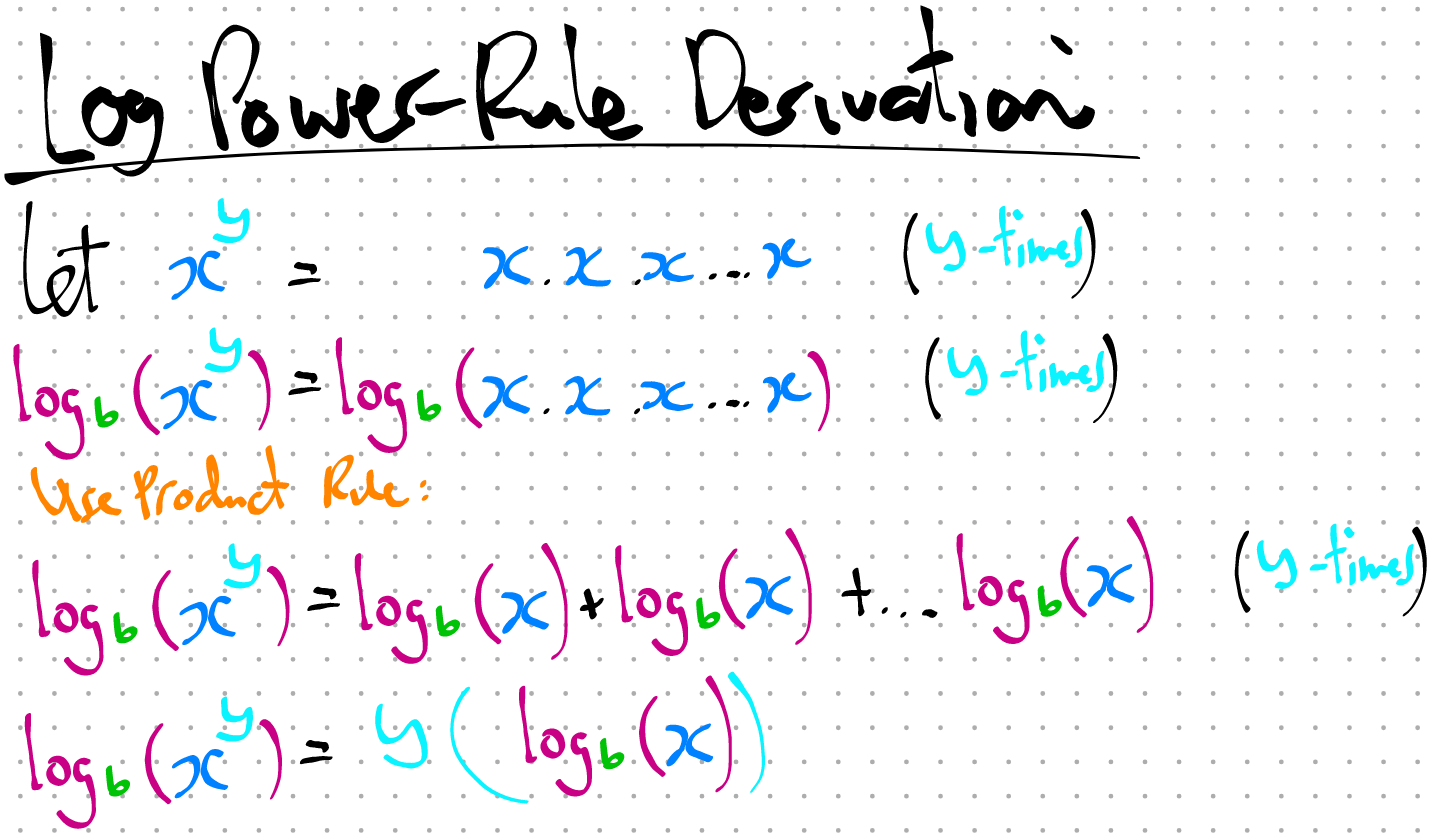 Log Power-Rule Derivation
Let x^y = x . x . x ... x (y-times)
log_b(x^y) = log_b(x . x . x ... x) (y-times)
Use Product Rule:
log_b(x^y) = log_b(x) + log_b(x) + ... log_b(x) (y-times)
log_b(x^y) = y(log_b(x))